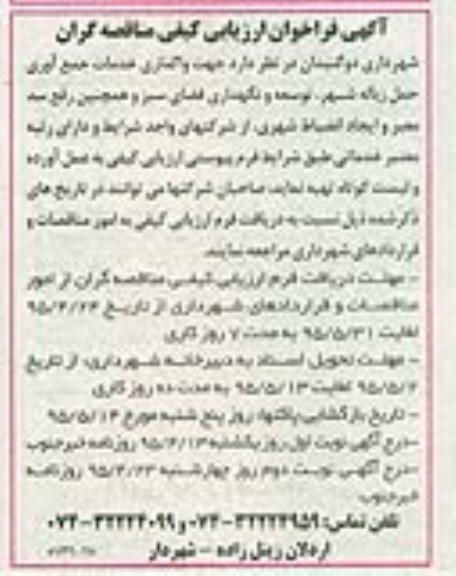 آگهی فراخوان ارزیابی کیفی مناقصه گران
شهرداری دوگنبدان در نظر دارد جهت واگذاری خدمات جمع آوری
حمل زباله شهر، توسعه و نگهداری فضای سبز و همچنین رفع سد
معبر و ایجاد انضباط شهری، از شرکتهای واجد شرایط و دارای رتبه
معتبر خدماتی طبق شرایط فرم پیوستی ارزیابی کیفی به عمل آورده
و لیست کوتاه تهیه نماید، صاحبان شرکتها می توانند در تاریخ های
ذکر شده ذیل نسبت به دریافت فرم ارزیابی کیفی به امور مناقصات و
قراردادهای شهرداری مراجعه نمایند.
- مهلت دریافت فرم ارزیابی کیفی مناقصه گران از امور
مناقصات و قراردادهای شهرداری از تاریخ
لغایت به مدت ۷ روز کاری
- مهلت تحویل اسناد به دبیرخانه شهرداری، از تاریخ
لغایت ۹۵/۵/۱۳ به مدت ده روز کاری
- تاریخ بازگشایی پاکتها، روز پنج شنبه مورخ ۹۵/۵/۱۴
-درج آگهی نوبت اول روز یکشنبه ۹۵/۴/۱۳ روزنامه خبرجنوب
-درج آگهی نوبت دوم روز چهارشنبه ۹۵/۴/۲۳ روزنامه
خبرجنوب
تلفن تماس: ۳۲۲۲۴۹۵۹-۰۷۴ و ۳۲۲۲۴۰۹۹-۰۷۴
اردلان زینل زاده - شهردار